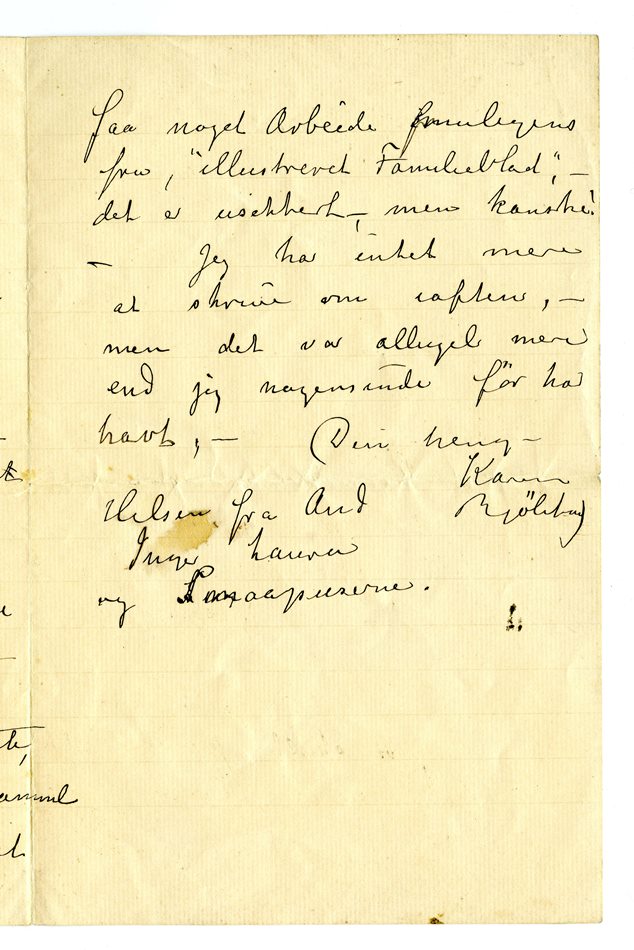 faa noget Arbeide
fra, "illustreret Familieblad", –
det er usikkert –, men kanske!
– Jeg har intet mere
at skrive om iaften, –
men det var alligel mere
end jeg nogensinde för har
havt, – Din heng –
Karen
Hilsen fra And Bjölstad
Inger Laura
og Smaapuserne.